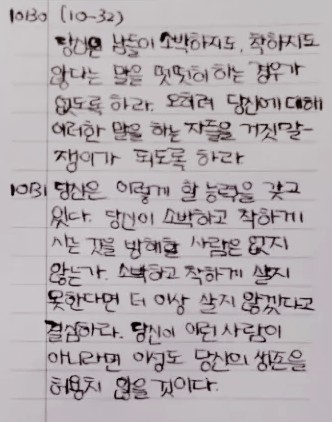 1030 (10-32)
당신은 남들이 소박하지도, 착하지도
않다는 말을 떳떳이 하는 경우가
없도록 하라. 오히려 당신에 대해
이러한 말을 하는 자들을 거짓말-
쟁이가 되도록 하라
1031 당신은 이렇게 할 능력을 갖고
있다. 당신이 소박하고 착하게
사는 것을 방해할 사람은 없지
않는가. 소박하고 착하게 살지
못한다면 더 이상 살지 않겠다고
결심하라. 당신이 이런 사람이
아니라면 이성도 당신의 생존을
허용치 않을 것이다.